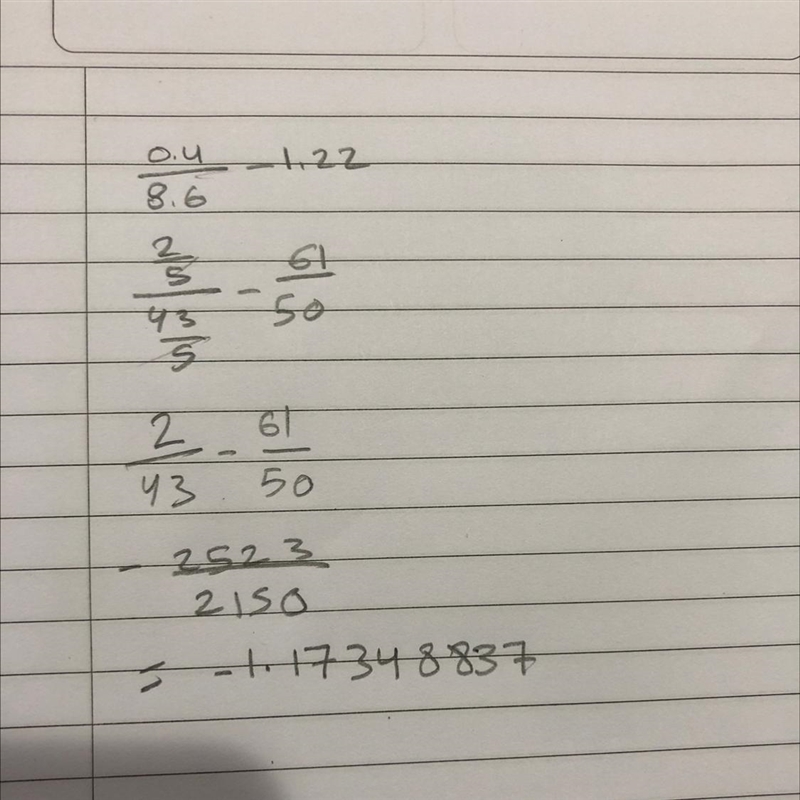 0.4/8.6 - 1.22
2/5/43/5 - 61/50
2/43 - 61/50
- 2523/2150
= -1.17348837